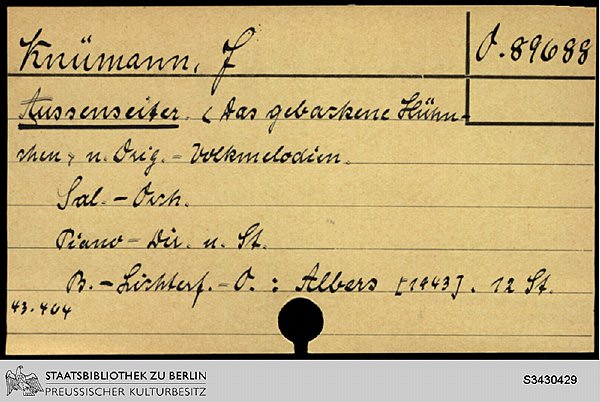 Knümann, J
O. 89688
Aussenseiter. (Das gebackene Hühn-
chen, n. Orig. - Volkmelodien.
Sal. - Orch.
Piano - Dir. u. St.
B. - Lichterf. - O. : Albers [1943]. 12 St.
43.464
STAATSBIBLIOTHEK ZU BERLIN
PREUSSISCHER KULTURBESITZ
S3430429